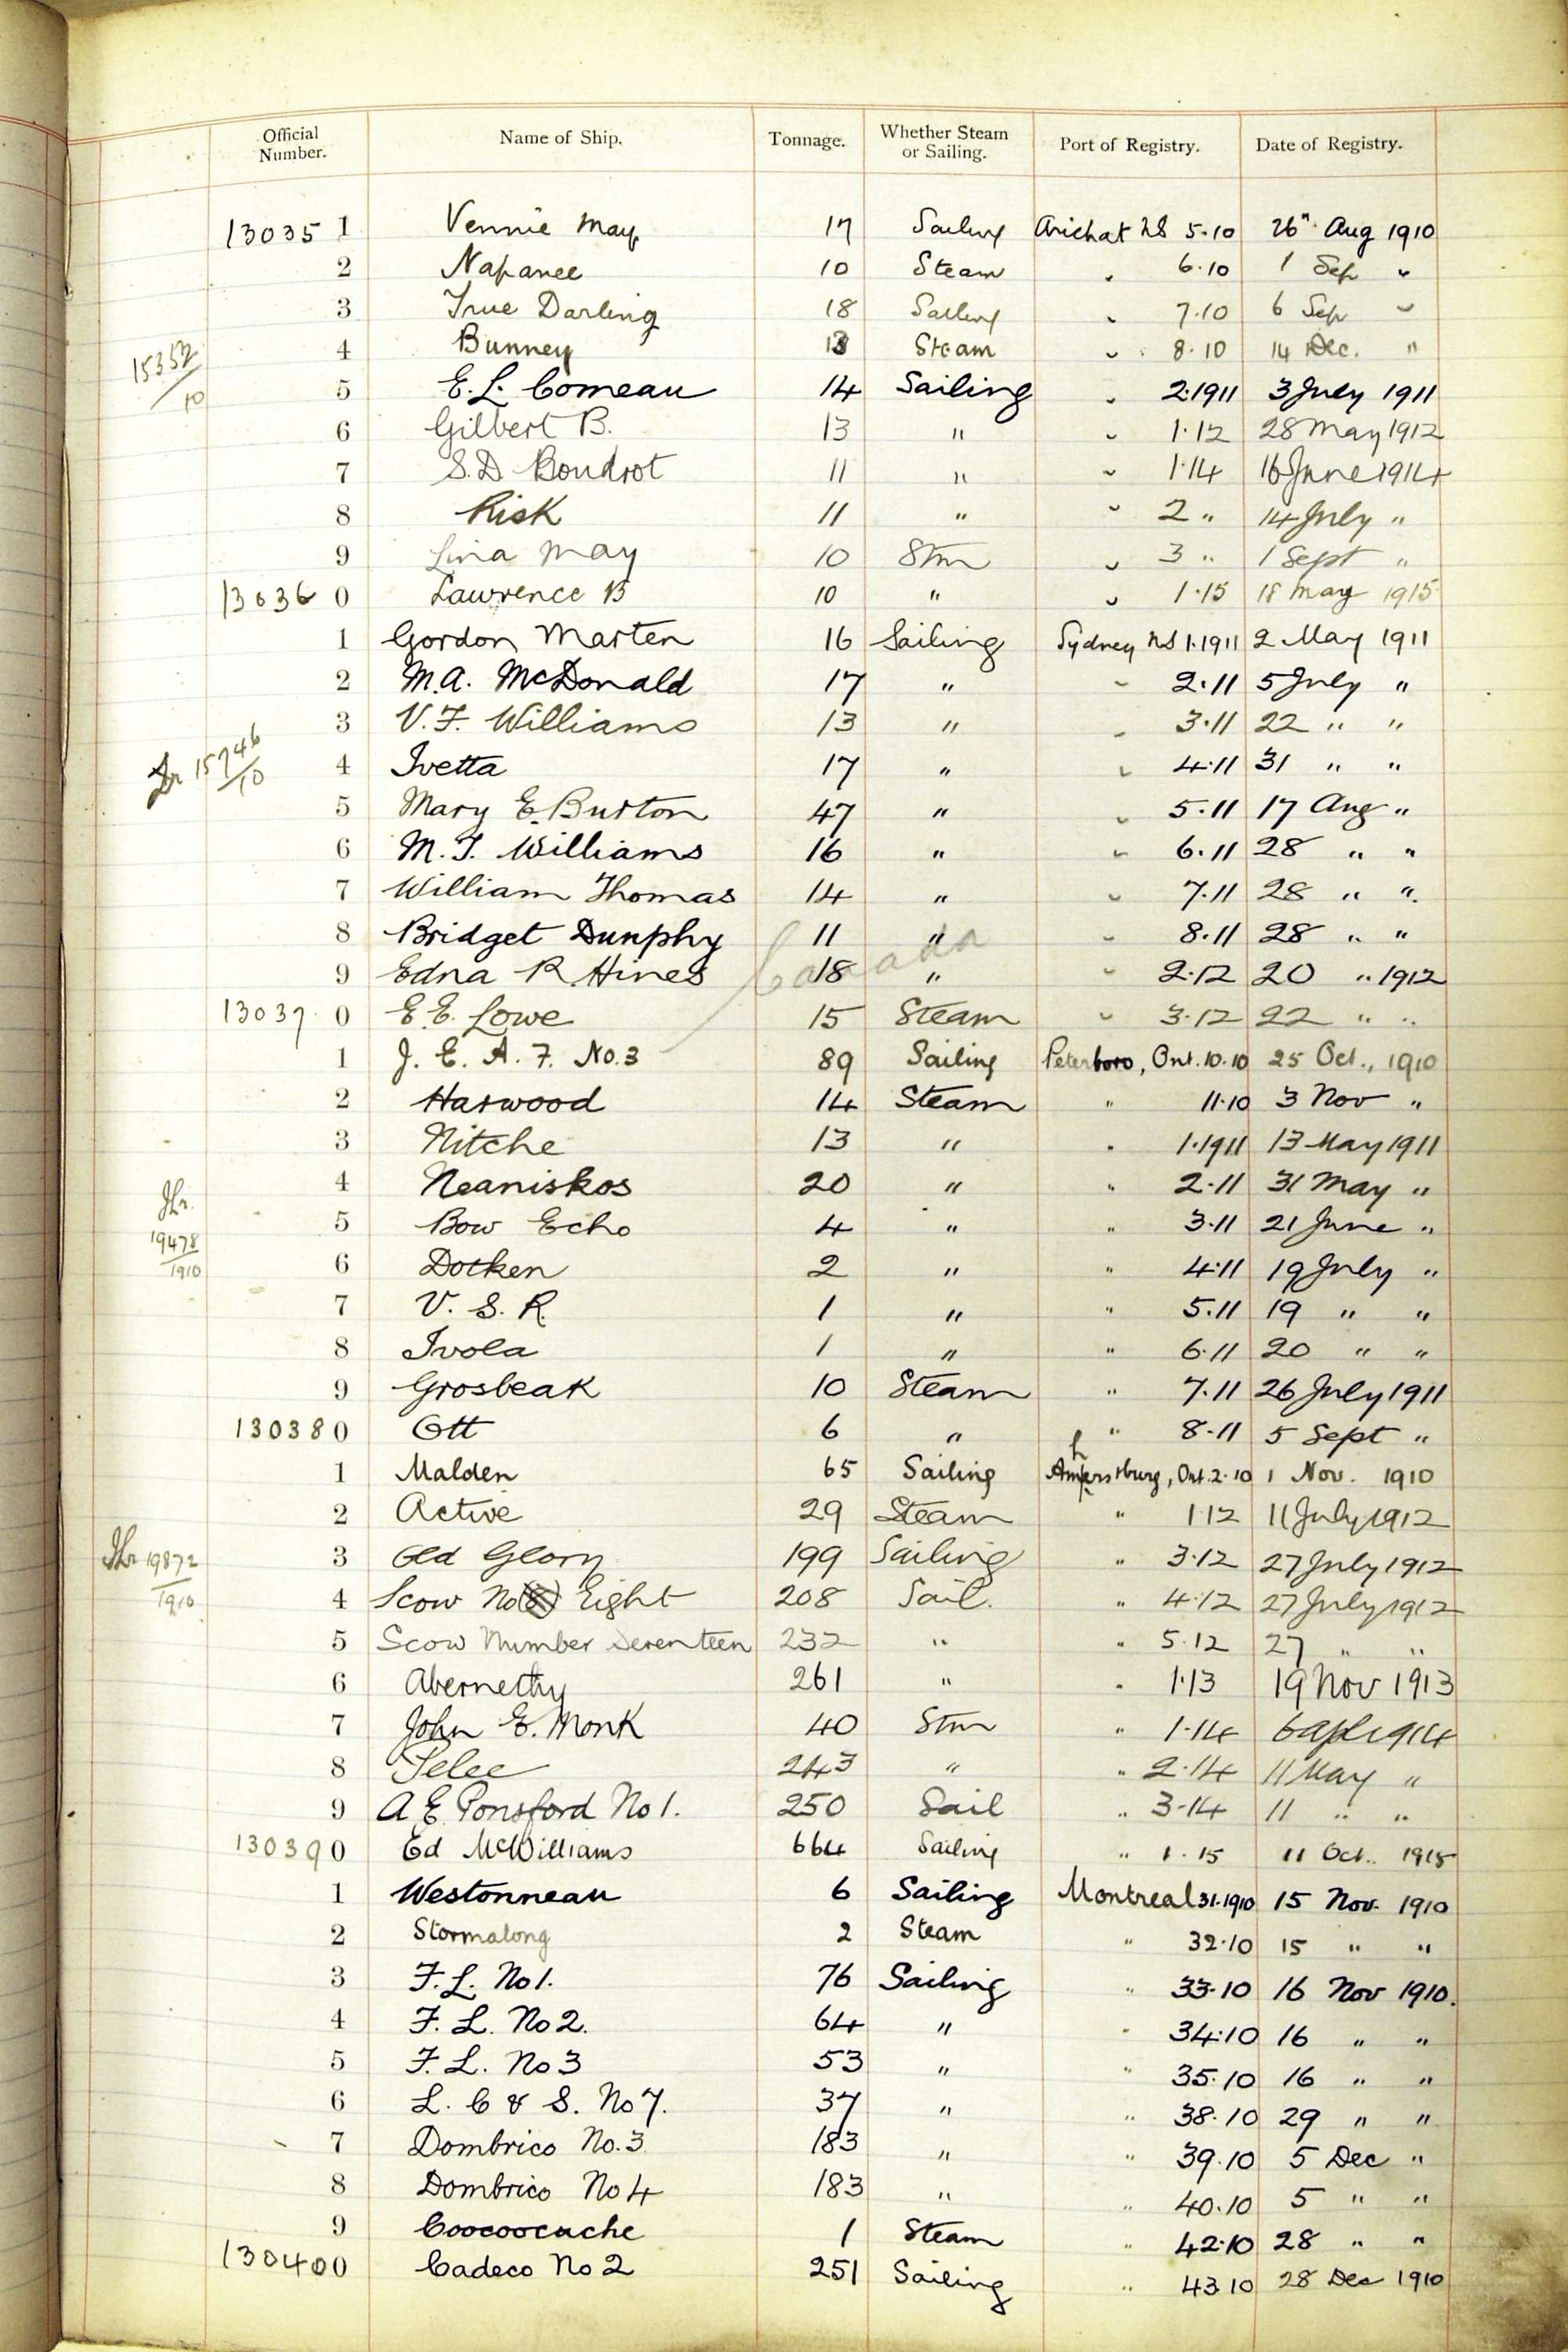 Official Number. Name of Ship. Tonnage. Whether Steam or Sailing. Port of Registry. Date of Registry.
130351 Vennie May 17 Sailing Arichat NS 5.10 26" Aug 1910
2 Napanee 10 Steam " 6.10 1 Sep "
3 True Darling 18 Sailing " 7.10 6 Sep "
15352/10 4 Bunney 13 Steam " 8.10 14 Dec. "
5 E. L. Comeau 14 Sailing " 2.1911 3 July 1911
6 Gilbert B. 13 " " 1.12 28 May 1912
7 S. D Boudrot 11 " " 1.14 16 June 1914
8 Risk 11 " " 2 " 14 July "
9 Lina May 10 Stm " 3 " 1 Sept "
130360 Lawrence B 10 " " 1.15 18 May 1915
1 Gordon Marten 16 Sailing Sydney NS 1.1911 2 May 1911
2 M. A. McDonald 17 " " 2.11 5 July "
3 V. F. Williams 13 " " 3.11 22 " "
15746/10 4 Ivetta 17 " " 4.11 31 " "
5 Mary E. Burton 47 " " 5.11 17 Aug "
6 M. J. Williams 16 " " 6.11 28 " "
7 William Thomas 14 " " 7.11 28 " "
8 Bridget Dunphy 11 " " 8.11 28 " "
Canada
9 Edna R. Hines 18 " " 2.12 20 " 1912
130370 E. E. Lowe 15 Steam " 3.12 22 " "
1 J. E. A. F. No. 3 89 Sailing Peterboro, Ont. 10.10 25 Oct., 1910
2 Harwood 14 Steam " 11.10 3 Nov "
3 Nitche 13 " " 1.1911 13 May 1911
4 Neaniskos 20 " " 2.11 31 May "
19478/1910 5 Bow Echo 4 " " 3.11 21 June "
6 Docken 2 " " 4.11 19 July "
7 V. S. R. 1 " " 5.11 19 " "
8 Ivola 1 " " 6.11 20 " "
9 Grosbeak 10 Steam " 7.11 26 July 1911
130380 Ott 6 " " 8.11 5 Sept "
1 Malden 65 Sailing Amherstburg, Ont. 2.10 1 Nov. 1910
2 Active 29 Steam " 1.12 11 July 1912
19872/1910 3 Old Glory 199 Sailing " 3.12 27 July 1912
4 Scow No (8) Eight 208 Sail. " 4.12 27 July 1912
5 Scow Number Seventeen 232 " " 5.12 27 " "
6 Abernethy 261 " " 1.13 19 Nov 1913
7 John E. Monk 40 Stm " 1.14 6 Apl 1914
8 Pelee 243 " " 2.14 11 May "
9 A E Ponsford No 1. 250 Sail " 3.14 11 " "
130390 Ed McWilliams 664 Sailing " 1.15 11 Oct. 1915
1 Westonneau 6 Sailing Montreal 31.1910 15 Nov. 1910
2 Stormalong 2 Steam " 32.10 15 " "
3 F. L. No 1. 76 Sailing " 33.10 16 Nov 1910.
4 F. L. No 2. 64 " " 34.10 16 " "
5 F. L. No 3 53 " " 35.10 16 " "
6 L. C & S. No 7. 37 " " 38.10 29 " "
7 Dombrico No. 3 183 " " 39.10 5 Dec "
8 Dombrico No 4 183 " " 40.10 5 " "
9 Coocoocache 1 Steam " 42.10 28 " "
130400 Cadeco No 2 251 Sailing " 43 10 28 Dec 1910